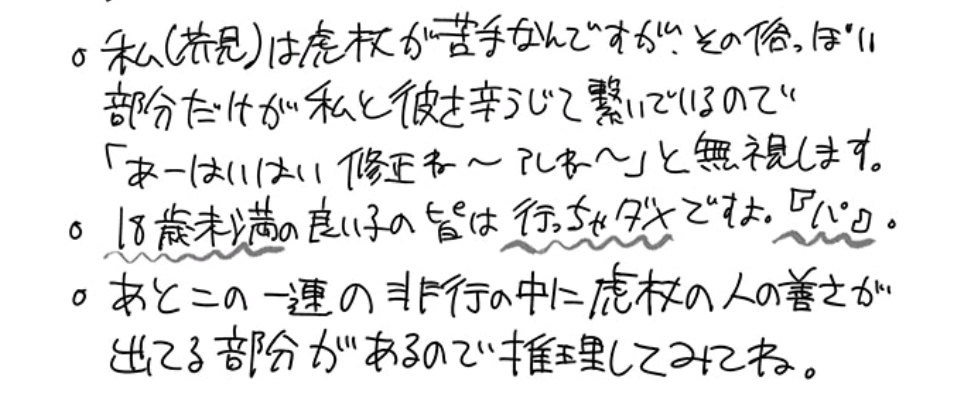 ○ 私(芥見)は虎杖が苦手なんですが、その俗っぽい
部分だけが私と彼を辛うじて繋いでいるので
「あーはいはい 修正ね〜 アレね〜」と無視します。
○ 18歳未満の良い子の皆は行っちゃダメですよ。『パ』。
○ あとこの一連の非行の中に虎杖の人の善さが
出てる部分があるので推理してみてね。